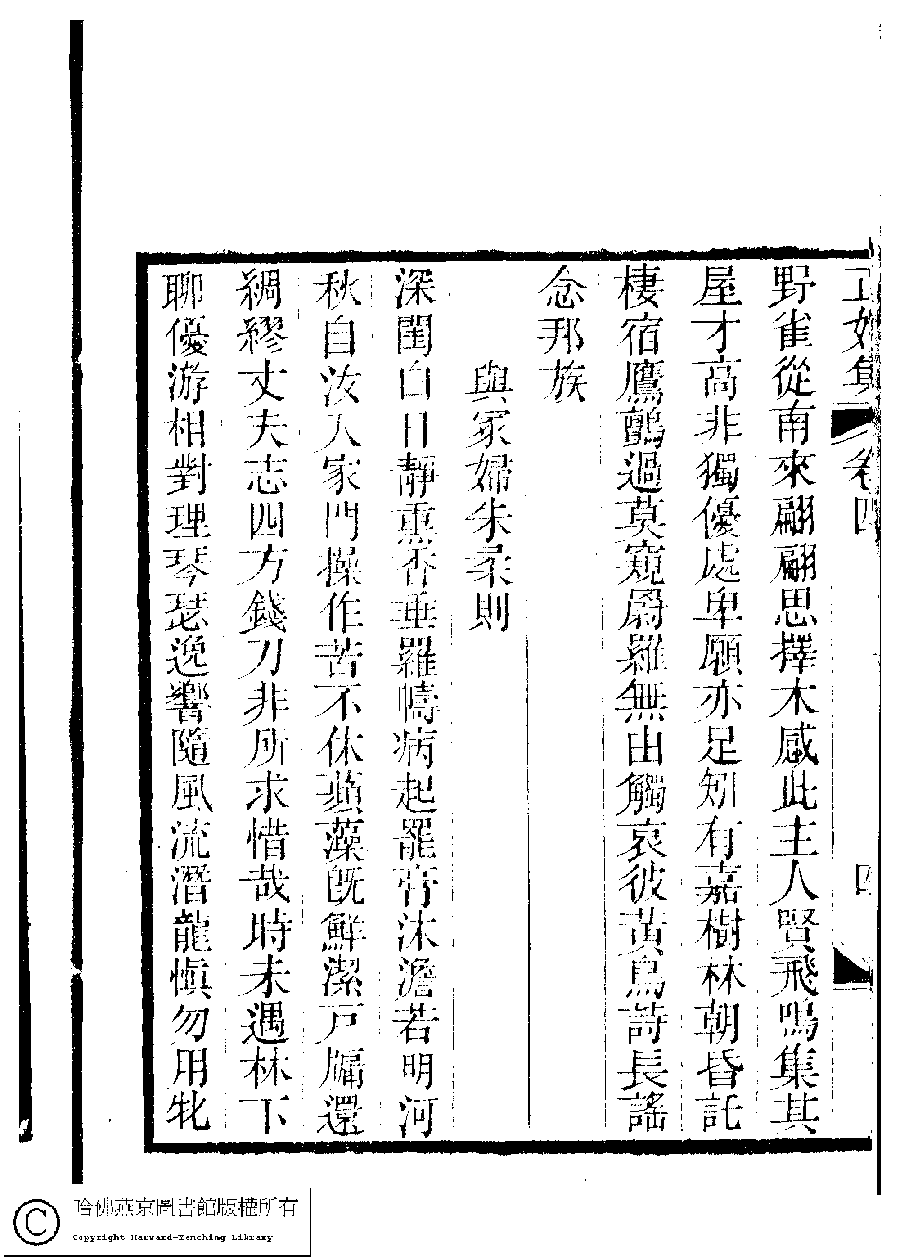 正始集 卷四 四
野雀從南來翩翩思擇木感此主人賢飛鳴集其
屋才高非獨優處卑願亦足矧有嘉樹林朝昏託
棲宿鷹鸇過莫窺罻羅無由觸哀彼黃鳥詩長謠
念邦族
與冢婦朱柔則
深閨白日靜熏香垂羅幬病起罷膏沐澹若明河
秋自汝入家門操作苦不休蘋藻旣鮮潔戸牖還
綢繆丈夫志四方錢刀非所求惜哉時未遇林下
聊優游相對理琴瑟逸響隨風流潛龍愼勿用牝
哈佛燕京圖書館版權所有
Copyright Harvard-Yenching Library